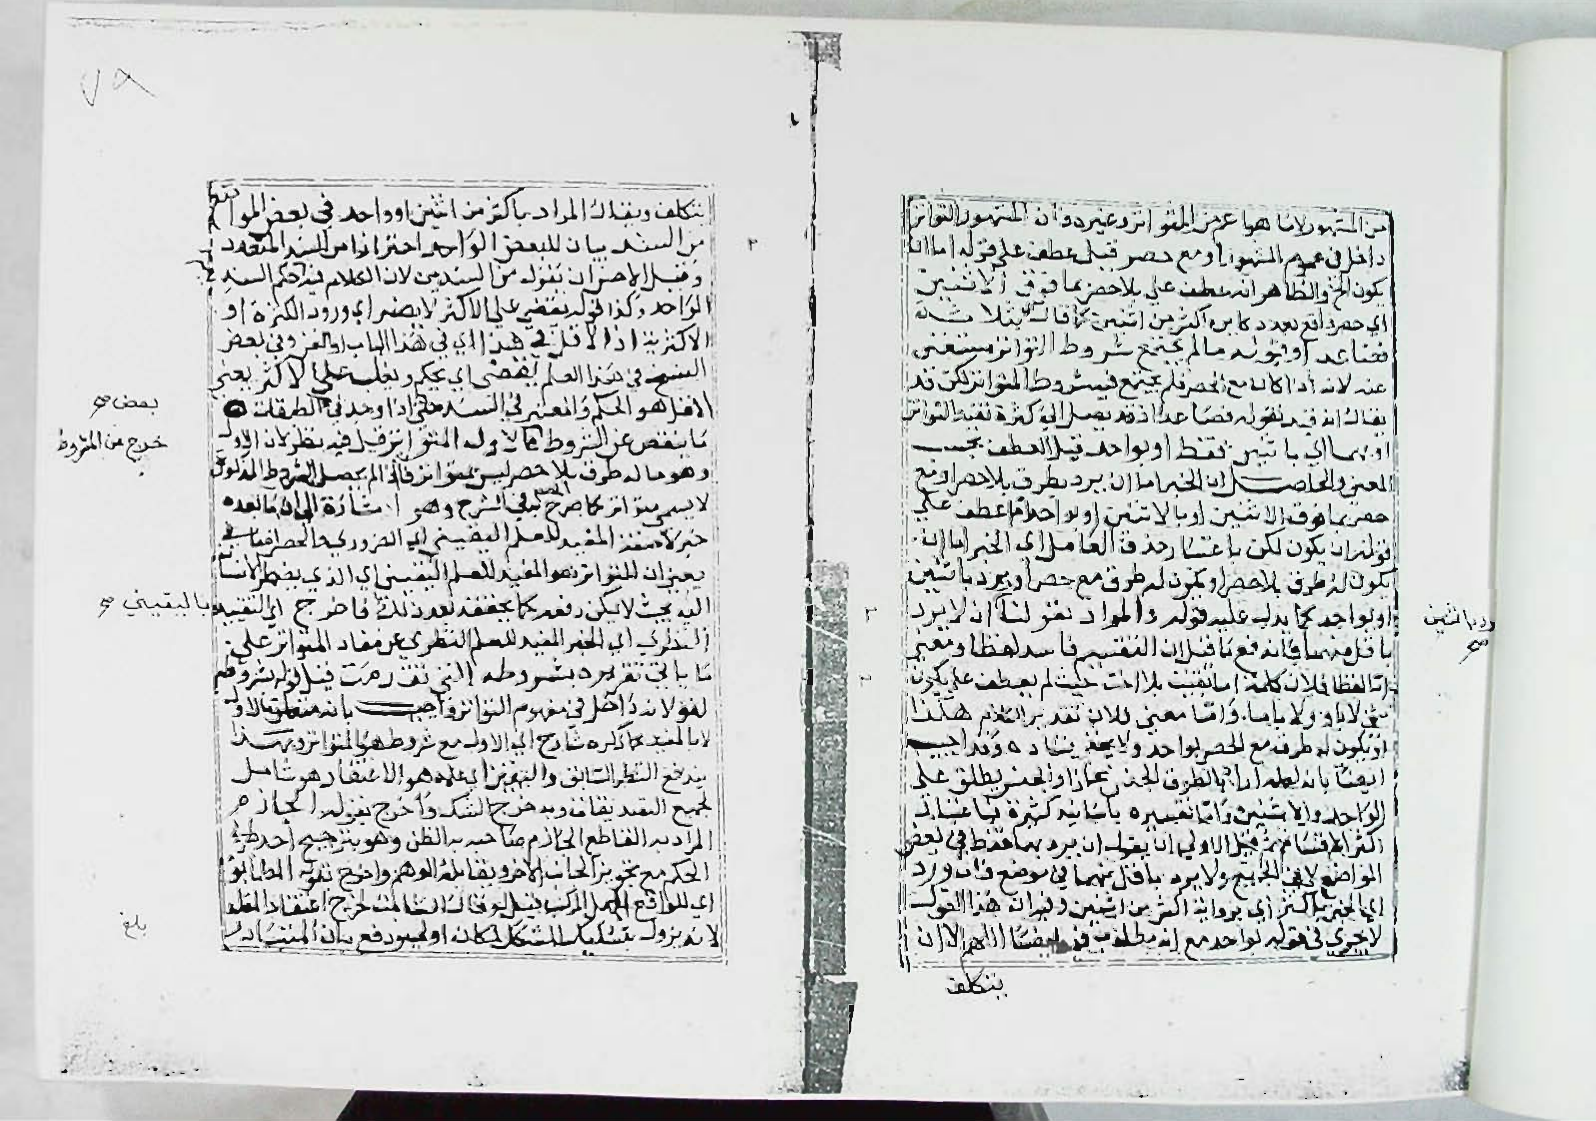 من المشهور لانا هو اعم من المتواتر وغيره وان المشهور المتواتر
داخل في عموم المشهور او مع حصر قيل عطف على قوله اما ان
يكون الخ والظاهر انه عطف على بلا حصر بما فوق الاثنين
اي حصر واقع بعدد كائن اكثر من اثنين كما قال بثلاثة
فصاعدا وقوله ما لم يجتمع شروط التواتر مستغنى
عنه لانه اذا كان مع الحصر فلم يجتمع فيه شروط المتواتر لكن قد
يقال انه قيد بقوله فصاعدا اذ قد يصل الى كثرة تفيد التواتر
او بهما اي باثنين فقط او بواحد قيل العطف بحسب
المعنى والحاصل ان الخبر اما ان يرد بطرق بلا حصر او مع
حصر بما فوق الاثنين او بالاثنين او بواحد عطف على
قوله ان يكون لكن باعتبار حذف العامل اي الخبر اما ان
يكون له طرق بلا حصر او يكون له طرق مع حصر او يرد باثنين
او بواحد كما يدل عليه قوله والمراد بقولنا ان لا يرد
باقل منهما فاندفع ما قيل ان التقسيم فاسد لفظا ومعنى
اما لفظا فلان كلمة اما بقيت بلا اخت حيث لم يعطف على يكون
شيء لا باو ولا باما واما معنى فلان تقدير الكلام هكذا
او يكون له طرق مع الحصر بواحد ولا يخفى فساده وقد اجيب
ايضا بانه لعله اراد بالطرق الجنس مجازا والجنس يطلق على
الواحد والاثنين واما تفسيره باسانيد كثيرة فباعتبار
اكثر الاقسام ثم قيل الاولى ان يقول ان يرد بهما فقط في بعض
المواضع لا في الجميع ولا يرد باقل منهما في موضع فان ورد
اي الخبر باكثر اي برواية اكثر من اثنين وفيه ان هذا القول
لا يجري في قوله بواحد مع انه مطلوب فيه ايضا اللهم الا ان
يتكلف
او باثنين
صح
٧٨
يتكلف ويقال المراد باكثر من اثنين او واحد في بعض المواضع
من السند بيان للبعض الواحد احترازا من السند المتعدد
وقيل الاحسن ان يقول من السندين لان الكلام في حكم السند
الواحد وكذا قوله يقضي على الاكثر لا يضر اي ورود الكثرة او
الاكثرية اذ الاقل في هذا اي في هذا الباب او الفن وفي بعض
النسخ في هذا العلم يقضي اي يحكم ويغلب على الاكثر يعني
الاقل هو الحكم والمعتبر في السند حتى اذا وجد في الطبقات
ما ينقص عن الشروط فالاول المتواتر قيل فيه نظر لان الاول
وهو ما له طرق بلا حصر ليس بمتواتر فانه ما لم يحصل الشروط المذكورة
لا يسمى متواتر كما صرح به في الشرح وهو اشارة الى ان ما بعده
خبر لا صفة المفيد للعلم اليقيني اي الضروري
يعني ان المتواتر هو المفيد للعلم اليقيني اي الذي يضطر الانسان
اليه بحيث لا يمكن دفعه كما يحققه بعد ذلك فاخرج اي التقييد
النظري اي الخبر المفيد للعلم النظري عن مفاد المتواتر على
ما ياتي تقريره بشروطه التي تقدمت قيل قوله بشروطه
لغو لانه داخل في مفهوم التواتر واجيب بانه متعلق بالاول
لا بالمفيد كما ذكره شارح اي الاول مع شروط هو المتواتر وبهذا
يندفع النظر السابق واليقين اي علمه هو الاعتقاد هو شامل
لجميع وبه خرج الشك واخرج بقوله الجازم
المراد به القاطع الجازم صاحبه به الظن وهو يترجح احد طرفي
الحكم مع تجويز الجانب الاخر ويقابله الوهم واخرج بقوله المطابق
اي للواقع الجهل المركب قيل لو قال الثابت لخرج اعتقاد المقلد
لانه يزول بتشكيك المشكك لكان اولى
بعض صح
خرج عن المشروط
باليقيني صح
بلغ